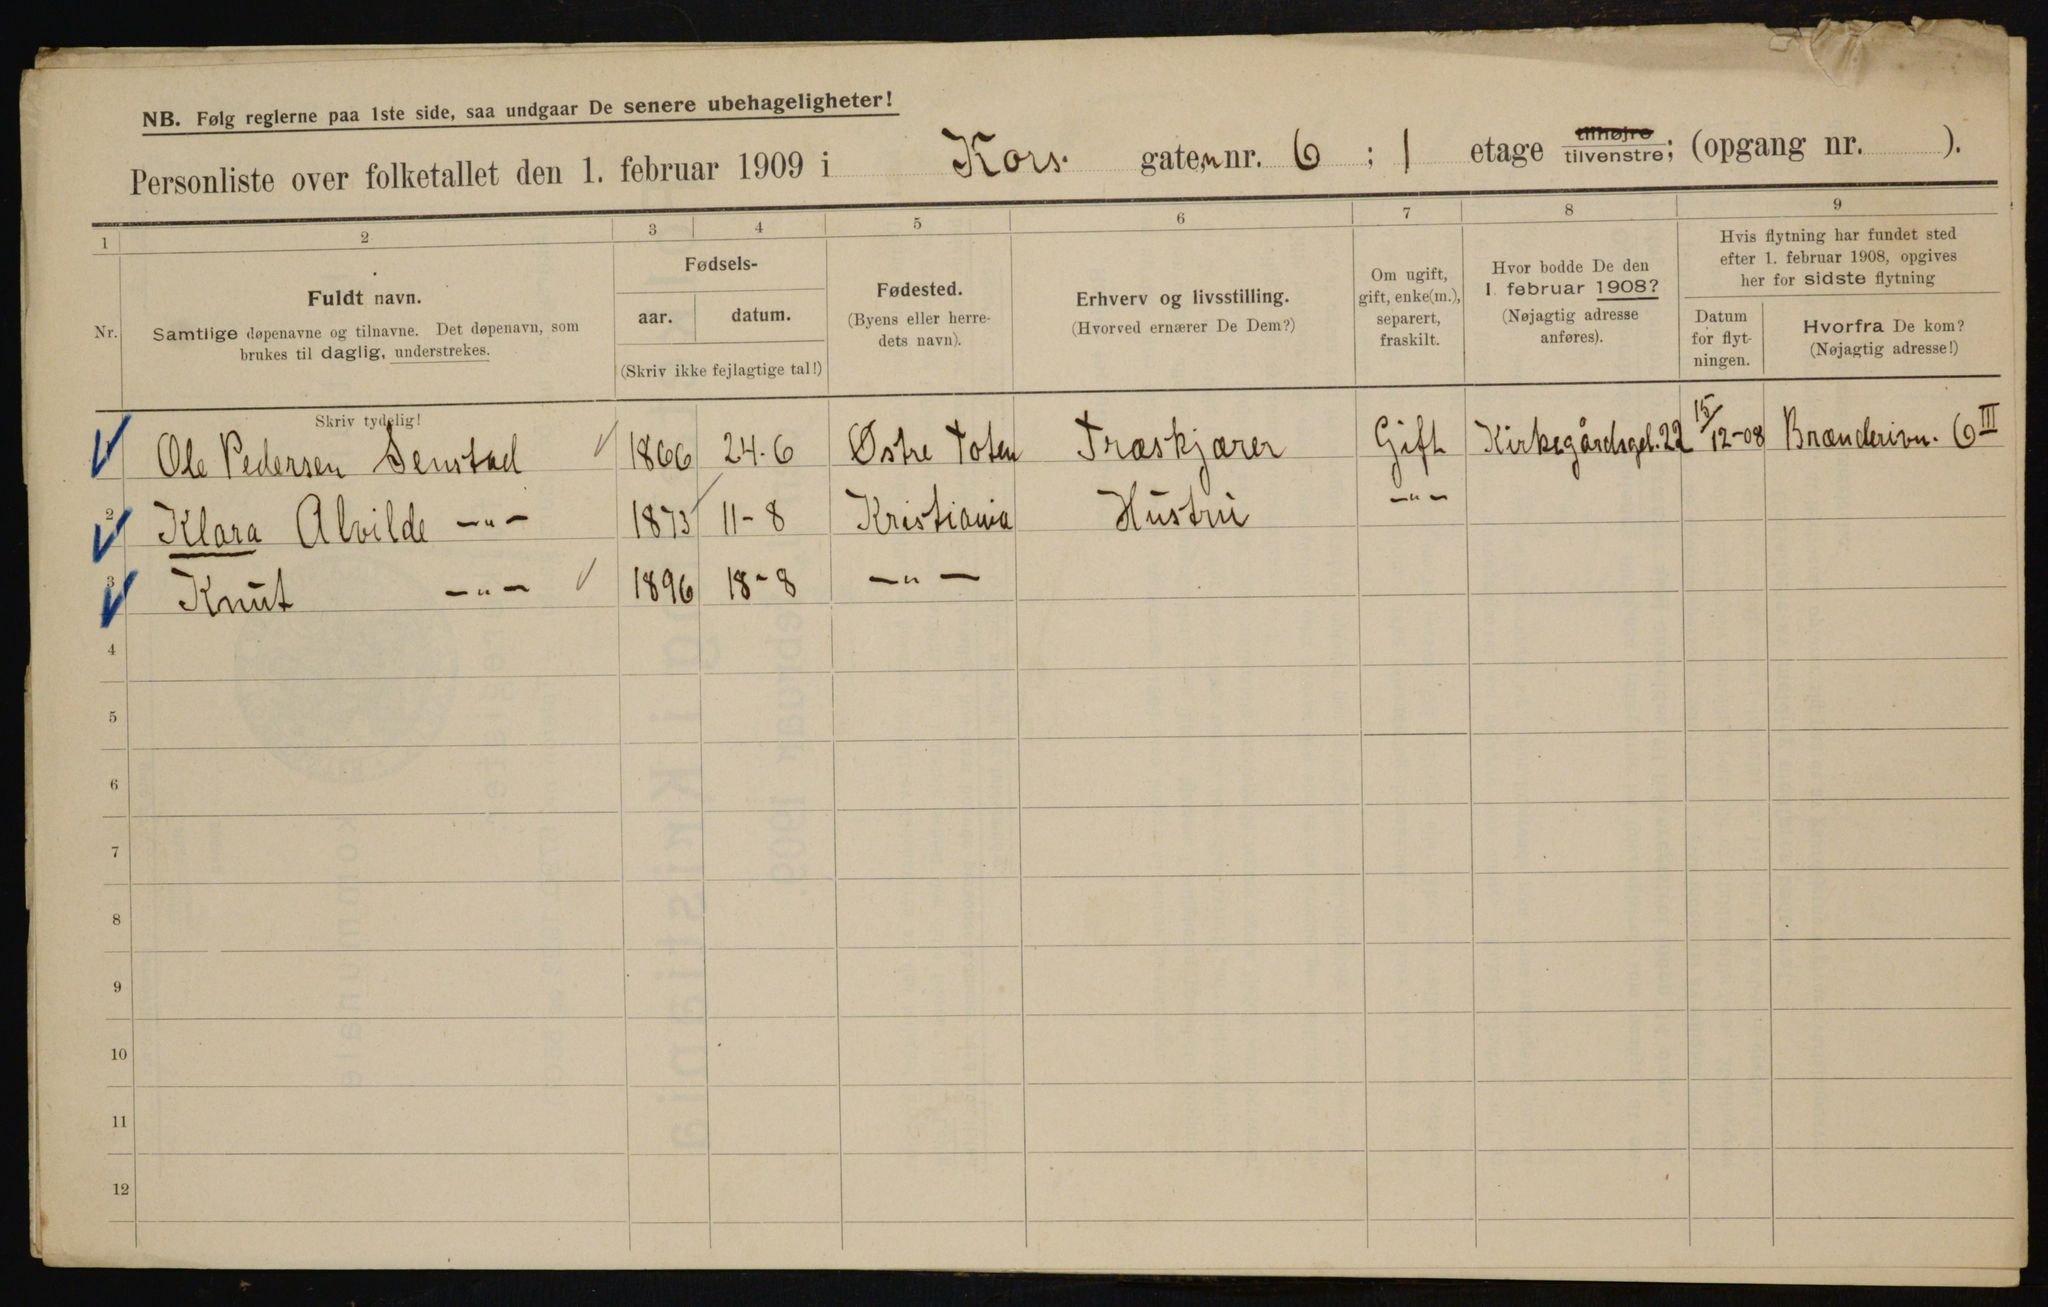 NB. Følg reglerne paa 1ste side, saa undgaar De senere ubehageligheter!
Personliste over folketallet den 1. februar 1909 i Kors. gaten nr. 6 ; 1 etage tilhøjre tilvenstre; (opgang nr. ).
1 2 3 4 5 6 7 8 9
Nr.
Fuldt navn.
Samtlige døpenavne og tilnavne. Det døpenavn, som
brukes til daglig, understrekes.
Fødsels-
aar. datum.
(Skriv ikke fejlagtige tal!)
Fødested.
(Byens eller herre-
dets navn).
Erhverv og livsstilling.
(Hvorved ernærer De Dem?)
Om ugift,
gift, enke(m.),
separert,
fraskilt.
Hvor bodde De den
1. februar 1908?
(Nøjagtig adresse
anføres).
Hvis flytning har fundet sted
efter 1. februar 1908, opgives
her for sidste flytning
Datum
for flyt-
ningen.
Hvorfra De kom?
(Nøjagtig adresse!)
Skriv tydelig!
Ole Pedersen Senstad 1866 24-6 Østre Toten Træskjærer Gift Kirkegårdsget. 22 15/12-08 Brænderivn. 6 III
2 Klara Alvilde -"- 1873 11-8 Kristiania Hustru -"-
3 Knut -"- 1896 18-8 -"-
4
5
6
7
8
9
10
11
12